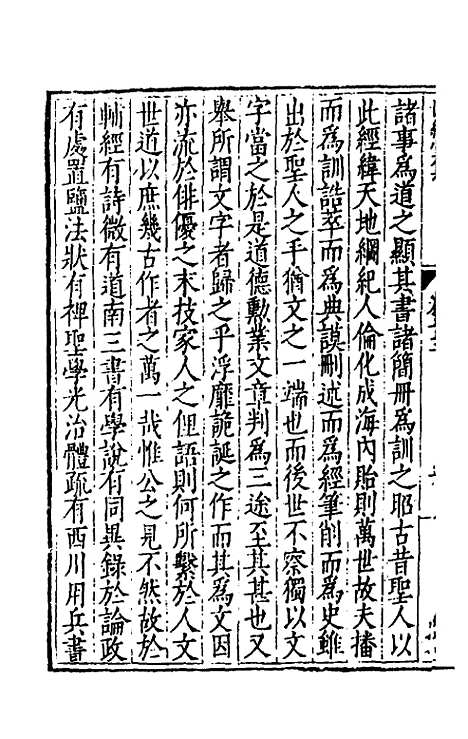 諸事爲道之顯其書諸簡冊爲訓之耶古昔聖人以
此經緯天地綱紀人倫化成海內貽則萬世故夫播
而爲訓誥萃而爲典謨刪述而爲經筆削而爲史雖
出於聖人之手猶文之一端也而後世不察獨以文
字當之於是道德勲業文章判爲三途至其甚也又
舉所謂文字者歸之乎浮靡詭誕之作而其爲文因
亦流於俳優之末技家人之俚語則何所繫於人文
世道以庶幾古作者之萬一哉惟公之見不然故於
輔經有詩微有道南三書有學說有同異録於論政
有處置鹽法狀有裨聖學光治體疏有西川用兵書